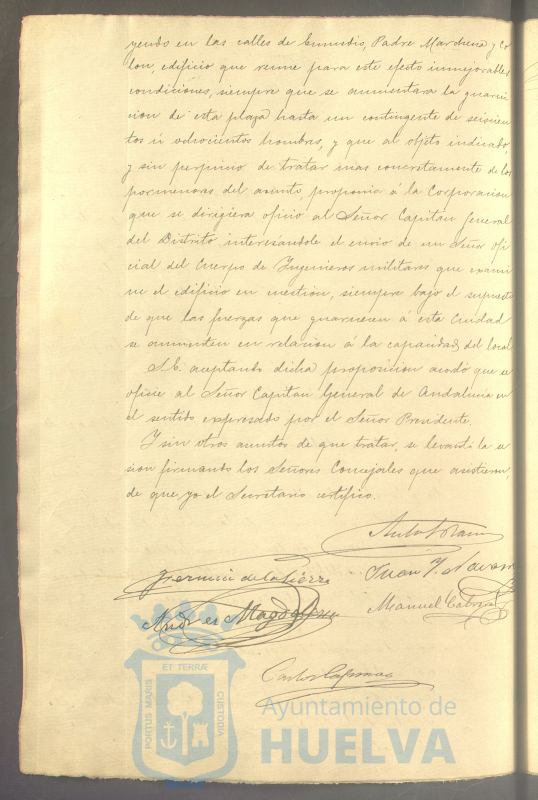 yendo en las calles de , Padre Marchena y Co
lon, edificio que reune para este efecto inmejorables
condiciones, siempre que se aumentara la guarni
cion de esta plaza hasta un contingente de seiscien
tos ú ochocientos hombres, y que al objeto indicado,
y sin perjuicio de tratar mas concretamente de los
pormenores del asunto, proponia á la Corporacion
que se dirigiera oficio al Señor Capitan General
del Distrito interesandole el envio de un Señor ofi
cial del Cuerpo de Ingenieros militares que exami
ne el edificio en cuestion, siempre bajo el supuesto
de que las fuerzas que guarnecen á esta Ciudad
se aumenten en relacion á la capacidad del local
S.E. aceptando dicha proposicion acordó que se
oficie al Señor Capitan General de Andalucia en
el sentido expresado por el Señor Presidente.
Y sin otros asuntos de que tratar, se levantó la se
sion firmando los Señores Concejales que asistieron,
de que, yo el Secretario certifico.
de la Sierra
Juan J.
Andres
Manuel Cabrera
Carlos
ET TERRÆ
PORTUS MARIS
CUSTODIA
Ayuntamiento de
HUELVA